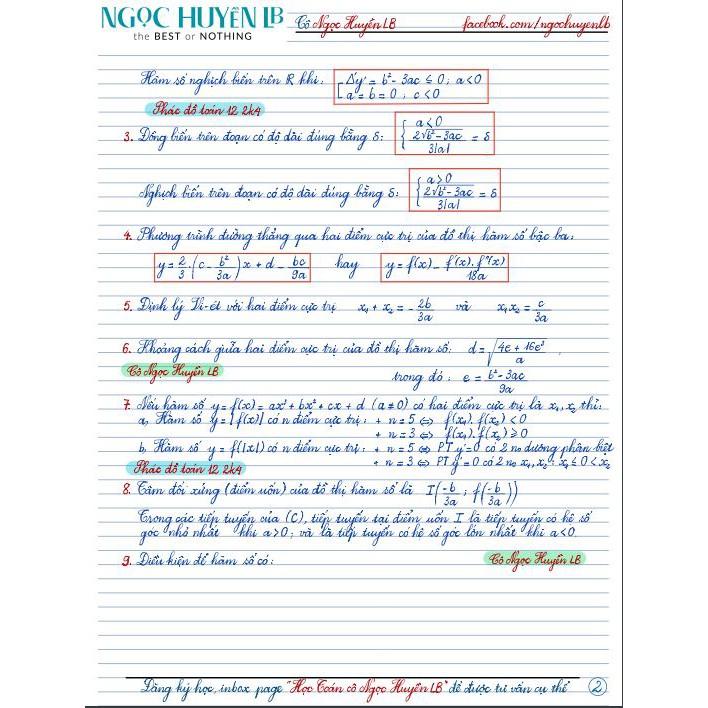 NGỌC HUYỀN LB
the BEST or NOTHING
Cô Ngọc Huyền LB
facebook.com/ngochuyenlb
Hàm số nghịch biến trên R khi: [Δ'y' = b² - 3ac ≤ 0; a < 0
a = b = 0; c < 0
Phác đồ toán 12 2k4
3. Đồng biến trên đoạn có độ dài đúng bằng δ: { a < 0
2√(b² - 3ac) / 3|a| = δ
Nghịch biến trên đoạn có độ dài đúng bằng δ: { a > 0
2√(b² - 3ac) / 3|a| = δ
4. Phương trình đường thẳng qua hai điểm cực trị của đồ thị hàm số bậc ba:
y = 2/3 . (c - b²/3a) x + d - bc/9a hay y = f(x) - f'(x).f''(x)/18a
5. Định lý Vi-ét với hai điểm cực trị x₁ + x₂ = -2b/3a và x₁x₂ = c/3a
6. Khoảng cách giữa hai điểm cực trị của đồ thị hàm số: d = √((4e + 16e³)/a)
Cô Ngọc Huyền LB
trong đó: e = (b² - 3ac)/9a
7. Nếu hàm số y = f(x) = ax³ + bx² + cx + d (a ≠ 0) có hai điểm cực trị là x₁, x₂ thì:
a, Hàm số y = |f(x)| có n điểm cực trị: + n = 5 ⇔ f(x₁).f(x₂) < 0
+ n = 3 ⇔ f(x₁).f(x₂) ≥ 0
b, Hàm số y = f(|x|) có n điểm cực trị: + n = 5 ⇔ PT y' = 0 có 2 no dương phân biệt
+ n = 3 ⇔ PT y' = 0 có 2 no x₁, x₂: x₁ ≤ 0 < x₂
Phác đồ toán 12 2k4
8. Tâm đối xứng (điểm uốn) của đồ thị hàm số là I(-b/3a; f(-b/3a))
Trong các tiếp tuyến của (C), tiếp tuyến tại điểm uốn I là tiếp tuyến có hệ số
góc nhỏ nhất khi a > 0; và là tiếp tuyến có hệ số góc lớn nhất khi a < 0.
9. Điều kiện để hàm số có:
Cô Ngọc Huyền LB
Đăng ký học, inbox page "Học Toán cô Ngọc Huyền LB" để được tư vấn cụ thể
2